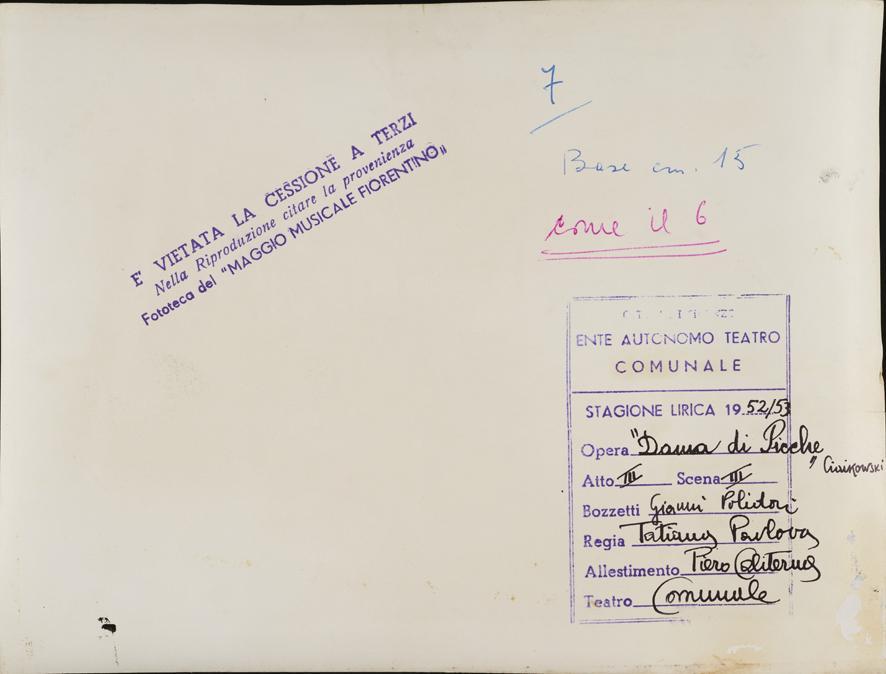 7
E' VIETATA LA CESSIONE A TERZI
Nella Riproduzione citare la provenienza
Fototeca del "MAGGIO MUSICALE FIORENTINO"
Base cm. 15
come il 6
ENTE AUTONOMO TEATRO
COMUNALE
STAGIONE LIRICA 1952/53
Opera "Dama di Picche" Ciaikowski
Atto III Scena III
Bozzetti Gianni Polidori
Regia Tatiana Pavlova
Allestimento Piero Caliterna
Teatro Comunale